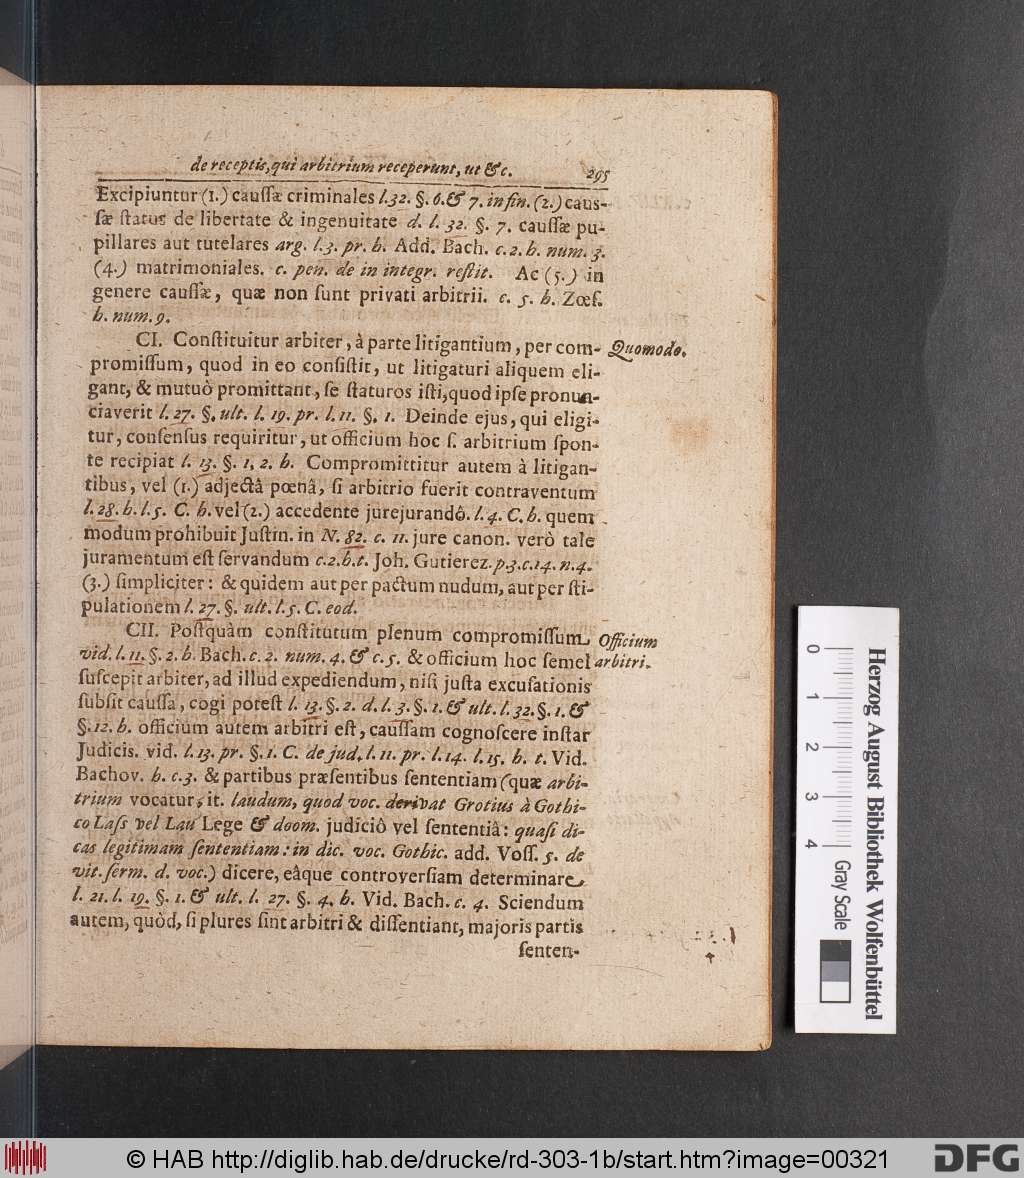 de receptis, qui arbitrium receperunt, ut &c. 295
Excipiuntur (1.) cauſſæ criminales l. 32. §. 6. & 7. in fin. (2.) cauſ-
ſæ ſtatus de libertate & ingenuitate d. l. 32. §. 7. cauſſæ pu-
pillares aut tutelares arg. l. 3. pr. h. Add. Bach. c. 2. h. num. 3.
(4.) matrimoniales. c. pen. de in integr. reſtit. Ac (5.) in
genere cauſſæ, quæ non ſunt privati arbitrii. c. 5. h. Zœſ.
h. num. 9.
CI. Conſtituitur arbiter, à parte litigantium, per com- Quomodo.
promiſſum, quod in eo conſiſtit, ut litigaturi aliquem eli-
gant, & mutuò promittant, ſe ſtaturos iſti, quod ipſe pronun-
ciaverit l. 27. §. ult. l. 19. pr. l. 11. §. 1. Deinde ejus, qui eligi-
tur, conſenſus requiritur, ut officium hoc ſ. arbitrium ſpon-
te recipiat l. 13. §. 1, 2. h. Compromittitur autem à litigan-
tibus, vel (1.) adjectâ pœnâ, ſi arbitrio fuerit contraventum
l. 28. h. l. 5. C. h. vel (2.) accedente jurejurandô. l. 4. C. h. quem
modum prohibuit Juſtin. in N. 82. c. 11. jure canon. verò tale
juramentum eſt ſervandum c. 2. h. t. Joh. Gutierez. p. 3. c. 14. n. 4.
(3.) ſimpliciter: & quidem aut per pactum nudum, aut per ſti-
pulationem l. 27. §. ult. l. 5. C. eod.
CII. Poſtquàm conſtitutum plenum compromiſſum Officium
vid. l. 11. §. 2. h. Bach. c. 2. num. 4. & c. 5. & officium hoc ſemel arbitri.
ſuſcepit arbiter, ad illud expediendum, niſi juſta excuſationis
ſubſit cauſſa, cogi poteſt l. 13. §. 2. d. l. 3. §. 1. & ult. l. 32. §. 1. &
§. 12. h. officium autem arbitri eſt, cauſſam cognoſcere inſtar
Judicis. vid. l. 13. pr. §. 1. C. de jud. l. 11. pr. l. 14. l. 15. h. t. Vid.
Bachov. h. c. 3. & partibus præſentibus ſententiam (quæ arbi-
trium vocatur, it. laudum, quod voc. derivat Grotius à Gothi-
co Laſs vel Lau Lege & doom. judiciô vel ſententiâ: quaſi di-
cas legitimam ſententiam: in dic. voc. Gothic. add. Voſſ. 5. de
vit. ſerm. d. voc.) dicere, eâque controverſiam determinare
l. 21. l. 19. §. 1. & ult. l. 27. §. 4. h. Vid. Bach. c. 4. Sciendum
autem, quòd, ſi plures ſint arbitri & diſſentiant, majoris partis
ſenten-
0 1 2 3 4
Gray Scale
Herzog August Bibliothek Wolfenbüttel
© HAB http://diglib.hab.de/drucke/rd-303-1b/start.htm?image=00321
DFG